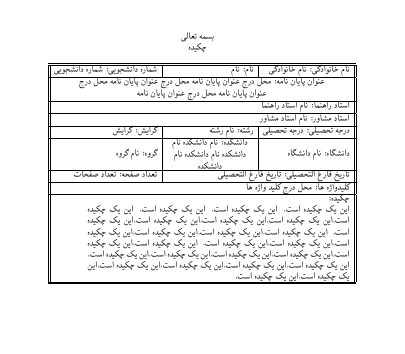 بسمه تعالی
چکیده
نام خانوادگی: نام خانوادگی نام: نام شماره دانشجویی: شماره دانشجویی
عنوان پایان نامه: محل درج عنوان پایان نامه محل درج عنوان پایان نامه محل درج
عنوان پایان نامه محل درج عنوان پایان نامه
استاد راهنما: نام استاد راهنما
استاد مشاور: نام استاد مشاور
درجه تحصیلی: درجه تحصیلی رشته: نام رشته گرایش: گرایش
دانشگاه: نام دانشگاه دانشکده: نام دانشکده نام دانشکده نام دانشکده نام دانشکده گروه: نام گروه
تاریخ فارغ التحصیلی: تاریخ فارغ التحصیلی تعداد صفحه: تعداد صفحات
کلیدواژه ها: محل درج کلید واژه ها
چکیده:
این یک چکیده است. این یک چکیده است. این یک چکیده است. این یک چکیده
است.این یک چکیده است.این یک چکیده است.این یک چکیده است.این یک چکیده
است. این یک چکیده است.این یک چکیده است.این یک چکیده است.این یک چکیده
است.این یک چکیده است.این یک چکیده است. این یک چکیده است.این یک چکیده
است.این یک چکیده است.این یک چکیده است.این یک چکیده است.این یک چکیده
است.این یک چکیده است.این یک چکیده است.این یک چکیده است.این
یک چکیده است.این یک چکیده است.